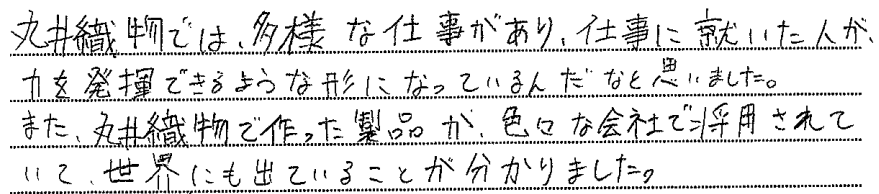 丸井織物では、多様な仕事があり、仕事に就いた人が、
力を発揮できるような形になっているんだなと思いました。
また、丸井織物で作った製品が、色々な会社で採用されて
いて、世界にも出ていることが分かりました。